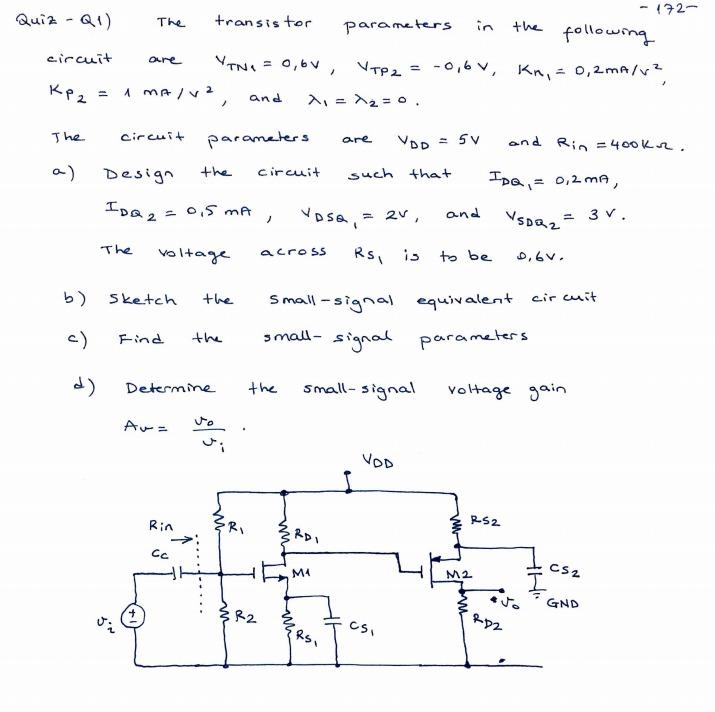 - 172 -
Quiz - Q1) The transistor parameters in the following
circuit are VTN1 = 0,6V, VTP2 = -0,6V, Kn1 = 0,2mA/V²,
Kp2 = 1 mA/V², and λ1 = λ2 = 0.
The circuit parameters are VDD = 5V and Rin = 400KΩ.
a) Design the circuit such that IDQ1 = 0,2mA,
IDQ2 = 0,5 mA, VDSQ1 = 2V, and VSDQ2 = 3V.
The voltage across RS1 is to be 0,6V.
b) Sketch the small-signal equivalent circuit
c) Find the small-signal parameters
d) Determine the small-signal voltage gain
Av = vo/vi.
VDD
Rin
R1
RD1
RS2
Cc
M1
M2
CS2
GND
vo
vi
R2
RS1
CS1
RD2